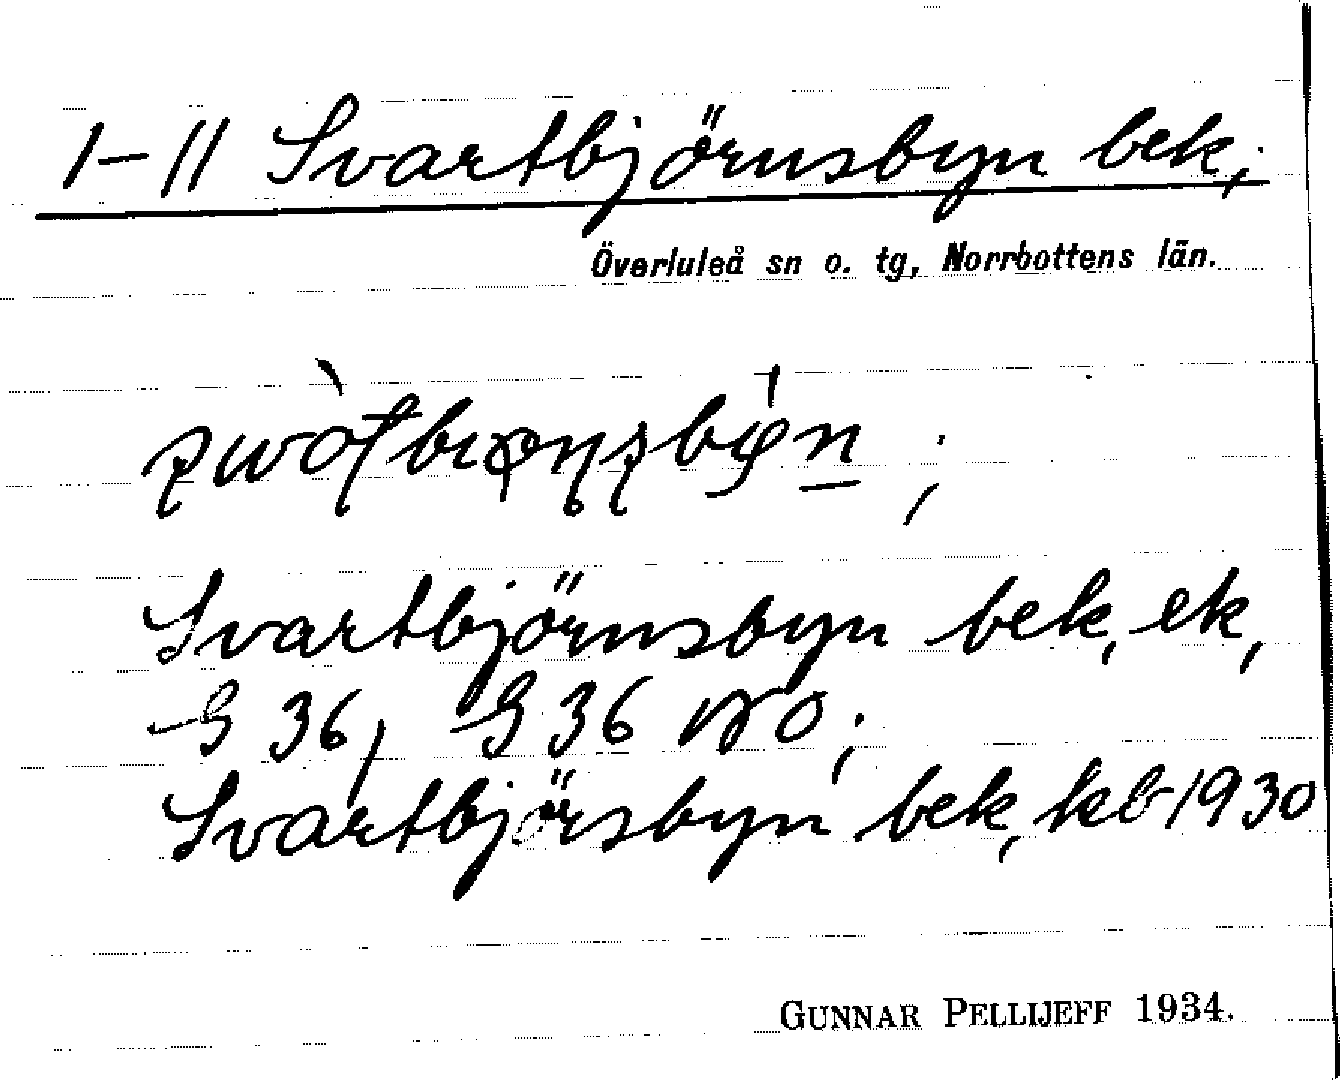 1–11 Svartbjörnsbyn bek.;
Överluleå sn o. tg, Norrbottens län.
Svartbjörnsbyn bek, ek,
G 36, G 36 NO;
Svartbjörsbyn bek, kb 1930
GUNNAR PELLIJEFF 1934.